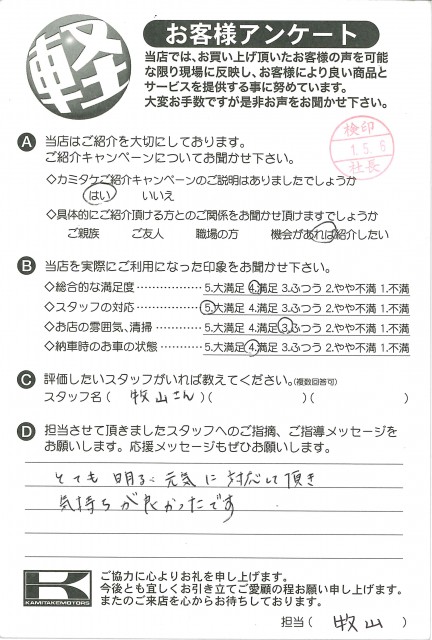 軽
お客様アンケート
当店では、お買い上げ頂いたお客様の声を可能
な限り現場に反映し、お客様により良い商品と
サービスを提供する事に努めています。
大変お手数ですが是非お声をお聞かせ下さい。
検印
1.5.6
社長
A 当店はご紹介を大切にしております。
ご紹介キャンペーンについてお聞かせ下さい。
◇カミタケご紹介キャンペーンのご説明はありましたでしょうか
はい いいえ
◇具体的にご紹介頂ける方とのご関係をお聞かせ頂けますでしょうか
ご親族 ご友人 職場の方 機会があれば紹介したい
B 当店を実際にご利用になった印象をお聞かせ下さい。
◇総合的な満足度 5.大満足 4.満足 3.ふつう 2.やや不満 1.不満
◇スタッフの対応 5.大満足 4.満足 3.ふつう 2.やや不満 1.不満
◇お店の雰囲気、清掃 5.大満足 4.満足 3.ふつう 2.やや不満 1.不満
◇納車時のお車の状態 5.大満足 4.満足 3.ふつう 2.やや不満 1.不満
C 評価したいスタッフがいれば教えてください。(複数回答可)
スタッフ名 ( 牧山さん )( )( )
D 担当させて頂きましたスタッフへのご指摘、ご指導メッセージを
お願いします。応援メッセージもぜひお願いします。
とても明るく元気に対応して頂き
気持ちが良かったです
K
KAMITAKE MOTORS
ご協力に心よりお礼を申し上げます。
今後とも宜しくお引き立てご愛顧の程お願い申し上げます。
またのご来店を心からお待ちしております。
担当 ( 牧山 )